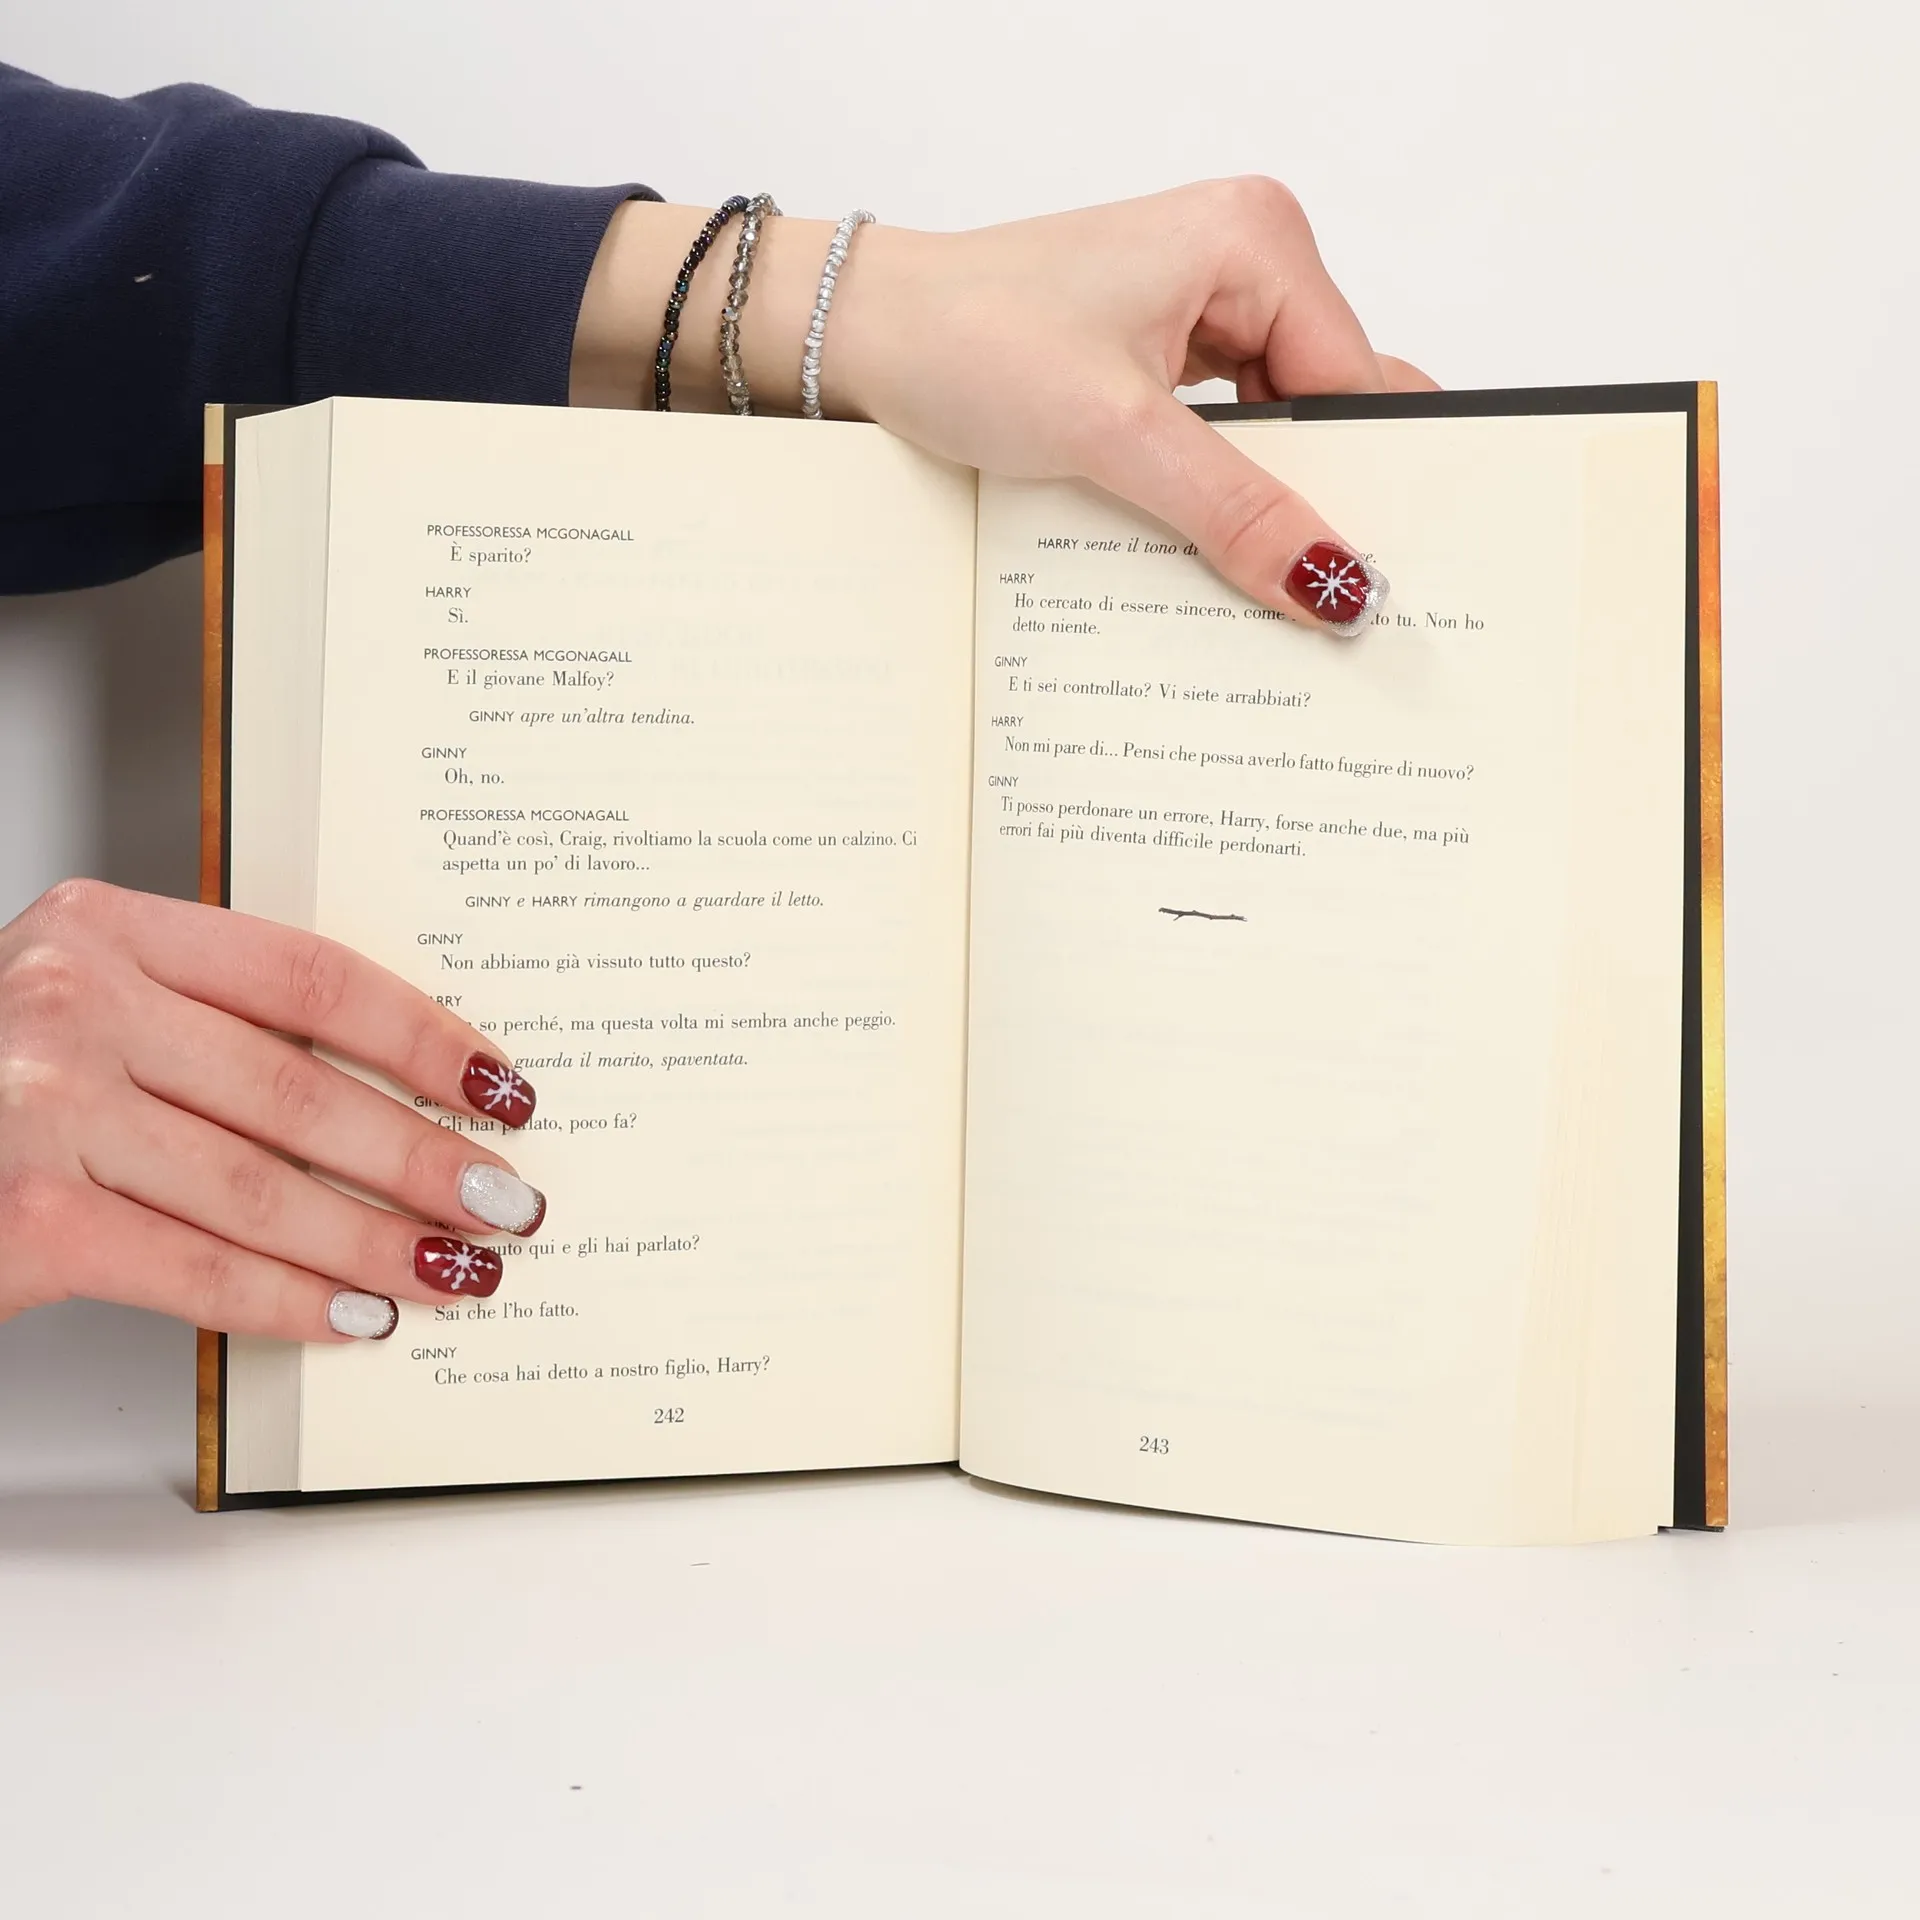 PROFESSORESSA MCGONAGALL
È sparito?
HARRY
Sì.
PROFESSORESSA MCGONAGALL
E il giovane Malfoy?
GINNY apre un'altra tendina.
GINNY
Oh, no.
PROFESSORESSA MCGONAGALL
Quand'è così, Craig, rivoltiamo la scuola come un calzino. Ci
aspetta un po' di lavoro...
GINNY e HARRY rimangono a guardare il letto.
GINNY
Non abbiamo già vissuto tutto questo?
so perché, ma questa volta mi sembra anche peggio.
guarda il marito, spaventata.
Gli hai poco fa?
qui e gli hai parlato?
Sai che l'ho fatto.
GINNY
Che cosa hai detto a nostro figlio, Harry?
242
HARRY sente il tono di
HARRY
Ho cercato di essere sincero, come tu. Non ho
detto niente.
GINNY
E ti sei controllato? Vi siete arrabbiati?
HARRY
Non mi pare di... Pensi che possa averlo fatto fuggire di nuovo?
GINNY
Ti posso perdonare un errore, Harry, forse anche due, ma più
errori fai più diventa difficile perdonarti.
243